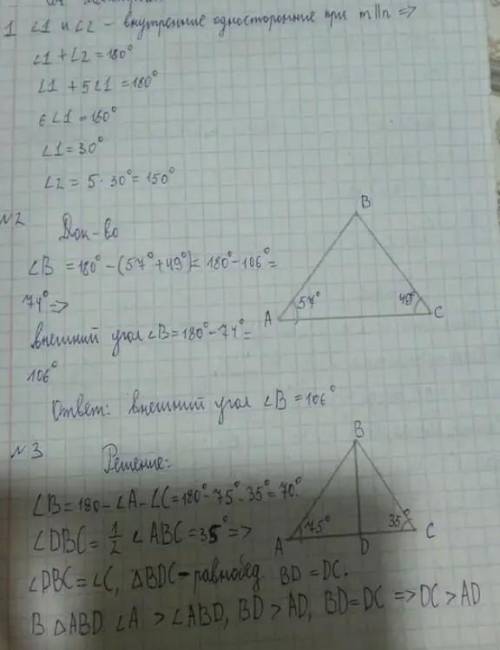 1 ∠1 и ∠2 – внутренние односторонние при m||n =>
∠1 + ∠2 = 180°
∠1 + 5∠1 = 180°
6∠1 = 180°
∠1 = 30°
∠2 = 5 · 30° = 150°
№2
Док-во
∠B = 180° – (57° + 49°) = 180° – 106° =
74° =>
внешний угол ∠B = 180° – 74° =
106°
Ответ: внешний угол ∠B = 106°
B
57°
49°
A
C
№3
Решение:
∠B = 180 – ∠A – ∠C = 180° – 75° – 35° = 70°.
∠DBC = 1/2 ∠ABC = 35° =>
∠DBC = ∠C, △BDC – равнобед. BD = DC.
В △ABD ∠A > ∠ABD, BD > AD, BD = DC => DC > AD
B
75°
35°
A
D
C